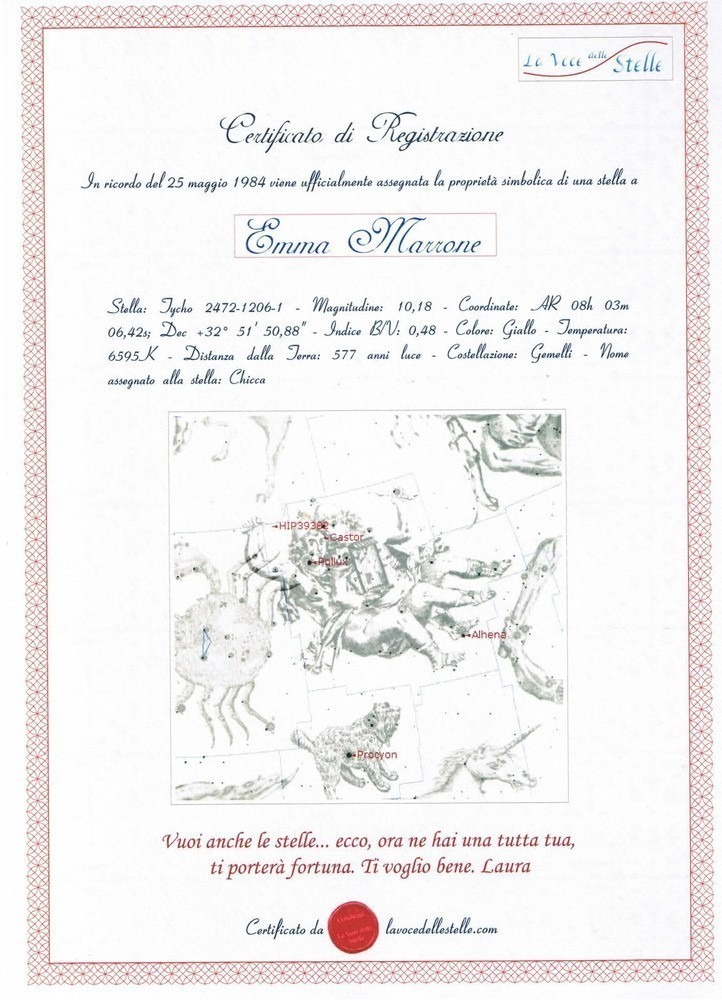 La Voce delle Stelle
Certificato di Registrazione
In ricordo del 25 maggio 1984 viene ufficialmente assegnata la proprietà simbolica di una stella a
Emma Marrone
Stella: Tycho 2472-1206-1 - Magnitudine: 10,18 - Coordinate: AR 08h 03m
06,42s; Dec +32° 51' 50,88" - Indice B/V: 0,48 - Colore: Giallo - Temperatura:
6595K - Distanza dalla Terra: 577 anni luce - Costellazione: Gemelli - Nome
assegnato alla stella: Chicca
HIP39382
Castor
Pollux
Alhena
Procyon
Vuoi anche le stelle... ecco, ora ne hai una tutta tua,
ti porterà fortuna. Ti voglio bene. Laura
Certificato da lavocedellestelle.com